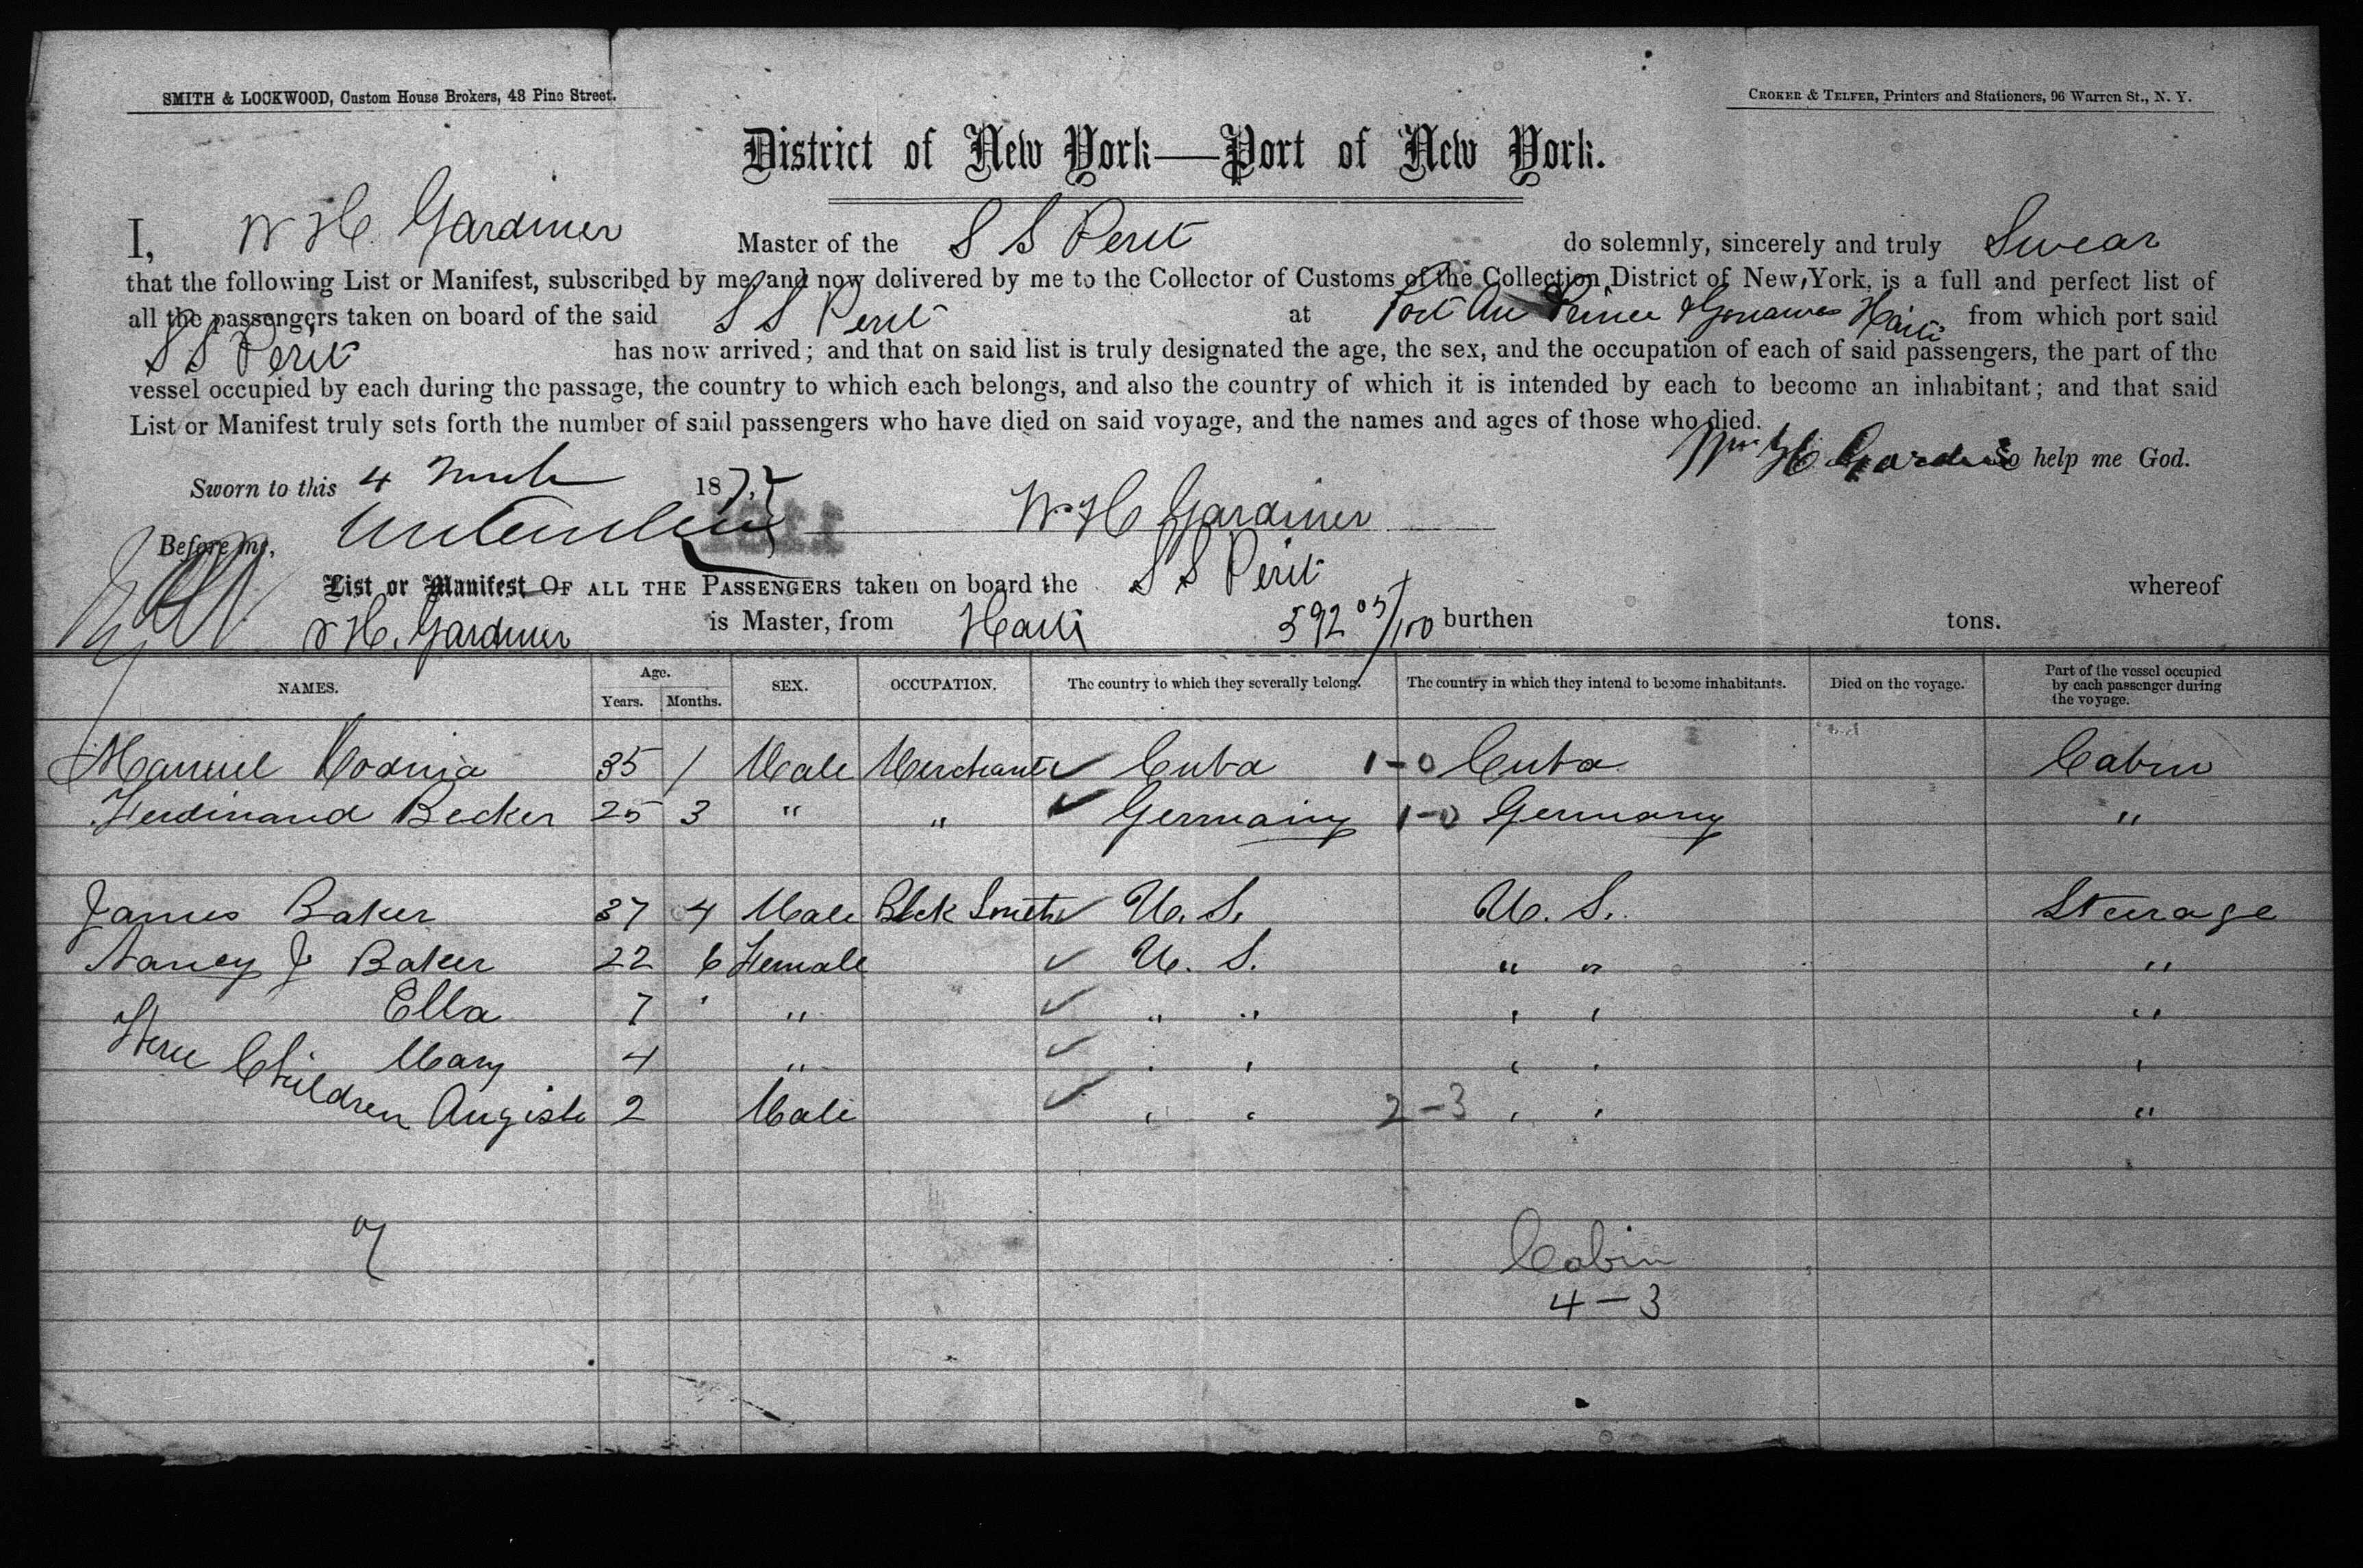 SMITH & LOCKWOOD, Custom House Brokers, 48 Pine Street.
CROKER & TELFER, Printers and Stationers, 96 Warren St., N. Y.
District of New York—Port of New York.
I, W H. Gardiner Master of the S S Perit do solemnly, sincerely and truly Swear
that the following List or Manifest, subscribed by me, and now delivered by me to the Collector of Customs of the Collection District of New York, is a full and perfect list of
all the passengers taken on board of the said S S Perit at Port Au Prince & Gonaives Haiti from which port said
S S Perit has now arrived; and that on said list is truly designated the age, the sex, and the occupation of each of said passengers, the part of the
vessel occupied by each during the passage, the country to which each belongs, and also the country of which it is intended by each to become an inhabitant; and that said
List or Manifest truly sets forth the number of said passengers who have died on said voyage, and the names and ages of those who died.
Wm H Gardiner So help me God.
Sworn to this 4 187
W H Gardiner
Before me,
List or Manifest OF ALL THE PASSENGERS taken on board the S S Perit whereof
W H. Gardiner is Master, from Haiti 592 05/100 burthen tons.
NAMES. Age. Years. Months. SEX. OCCUPATION. The country to which they severally belong. The country in which they intend to become inhabitants. Died on the voyage. Part of the vessel occupied by each passenger during the voyage.
Manuel 35 1 Male Merchant Cuba 1-0 Cuba Cabin
Ferdinand Becker 25 3 " " Germany 1-0 Germany "
James Baker 37 4 Male Blck Smith U. S. U. S. Steerage
Nancy J Baker 22 6 Female U. S. " " "
Ella 7 " " " " " "
Three Children Mary 4 " " " " " "
Augiste 2 Male " " 2-3 " " "
7
Cabin
4-3